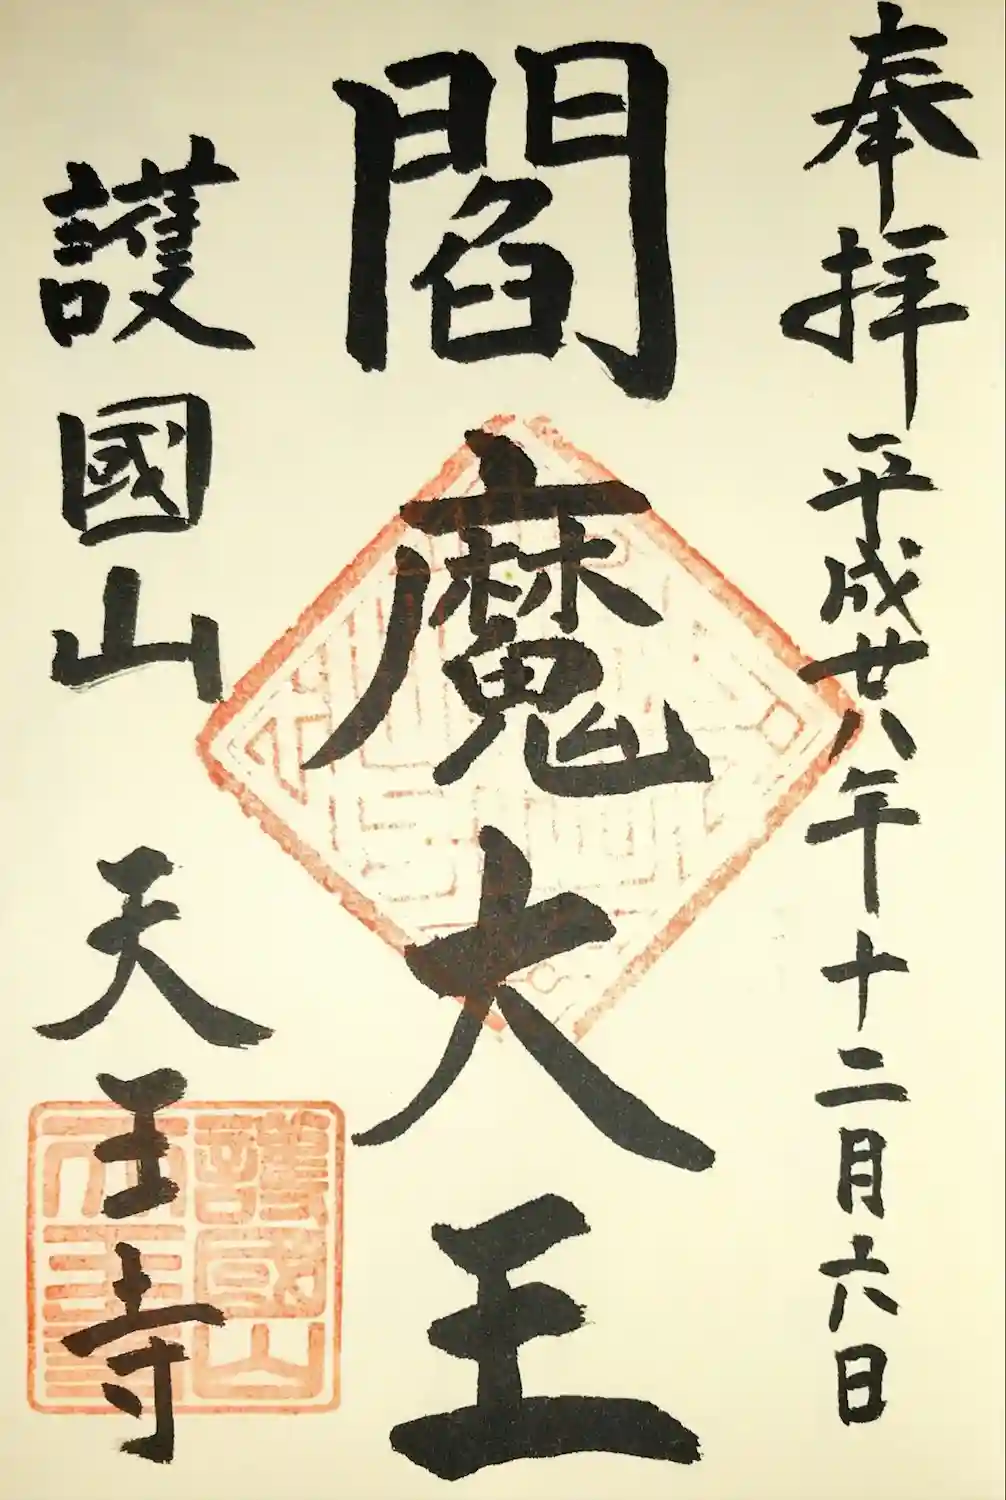 奉拝 平成廿八年十二月六日
閻魔大王
護國山 天王寺
護國山
天王寺